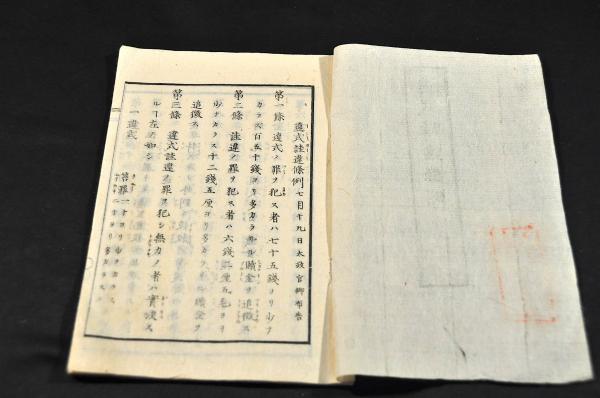 一 違式詿違條例 七月十九日太政官御布告
第一條 違式ノ罪ヲ犯ス者ハ七十五錢ヨリ少ナ
カラス百五十錢ヨリ多カラサル贖金ヲ追徴ス
第二條 詿違ノ罪ヲ犯ス者ハ六錢二厘五毛ヨリ
少ナカラス十二錢五厘ヨリ多カラサル贖金ヲ
追徴ス
第三條 違式詿違ノ罪ヲ犯シ無力ノ者ハ實決ス
ル左ノ如シ
一 違式
笞罪 一十ヨリ少ナカラス
ヨリ多カラス